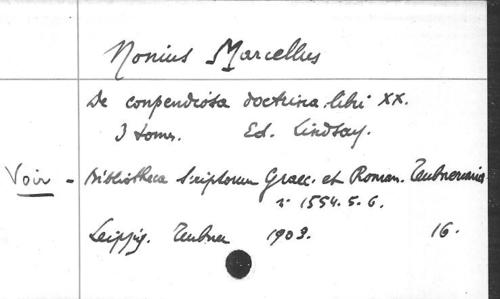 Nonius Marcellus
De conpendiosa doctrina libri XX.
3 tomes. Ed. Lindsay.
Voir - Bibliotheca Scriptorum Graec. et Roman. Teubneriana
n° 1554. 5. 6.
Leipzig. Teubner 1903. 16.